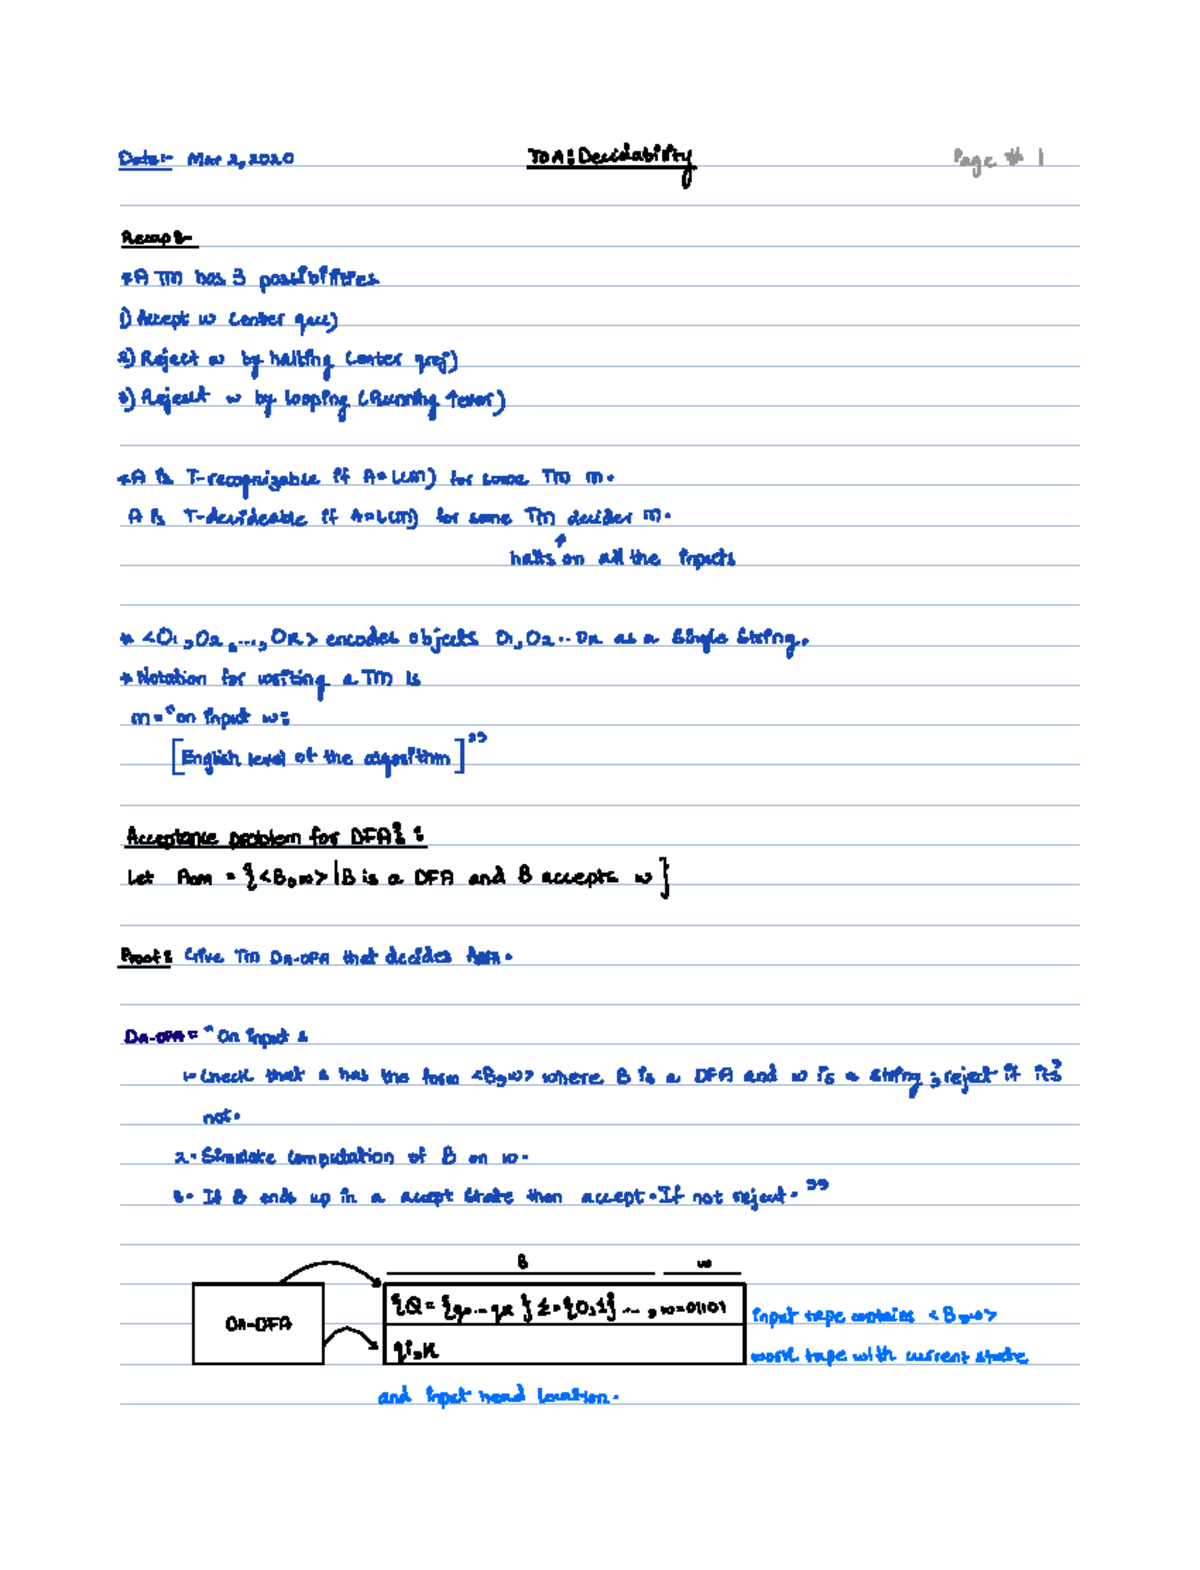 Date:- Mar 2, 2020
TOA: Decidability
Page # 1
Recap:-
*A TM has 3 possibilities
1) Accept w (enter qacc)
2) Reject w by halting (enter qrej)
3) Reject w by looping (Running fever)
*A is T-recognizable if A=L(m) for some TM m.
A is T-decideable if A=L(m) for some TM decider m.
↑
halts on all the inputs
* <O1,O2,...,OK> encodes objects O1,O2..OK as a single string.
*Notation for writing a TM is
m="on input w:
[English level of the algorithm]"
Acceptance problem for DFA's:
Let = {<B,w>|B is a DFA and B accepts w}
Proof: Give TM DA-DFA that decides ADFA.
DA-DFA= "On input s
1. Check that s has the form <B,w> where B is a DFA and w is a string; reject if it's
not.
2. Simulate computation of B on w.
3. If B ends up in a accept state then accept. If not reject."
B
w
DA-DFA
{Q={q0...qk} Σ={0,1}..., w=01101
qi,K
input tape contains <B,w>
work tape with current state
and input head location.